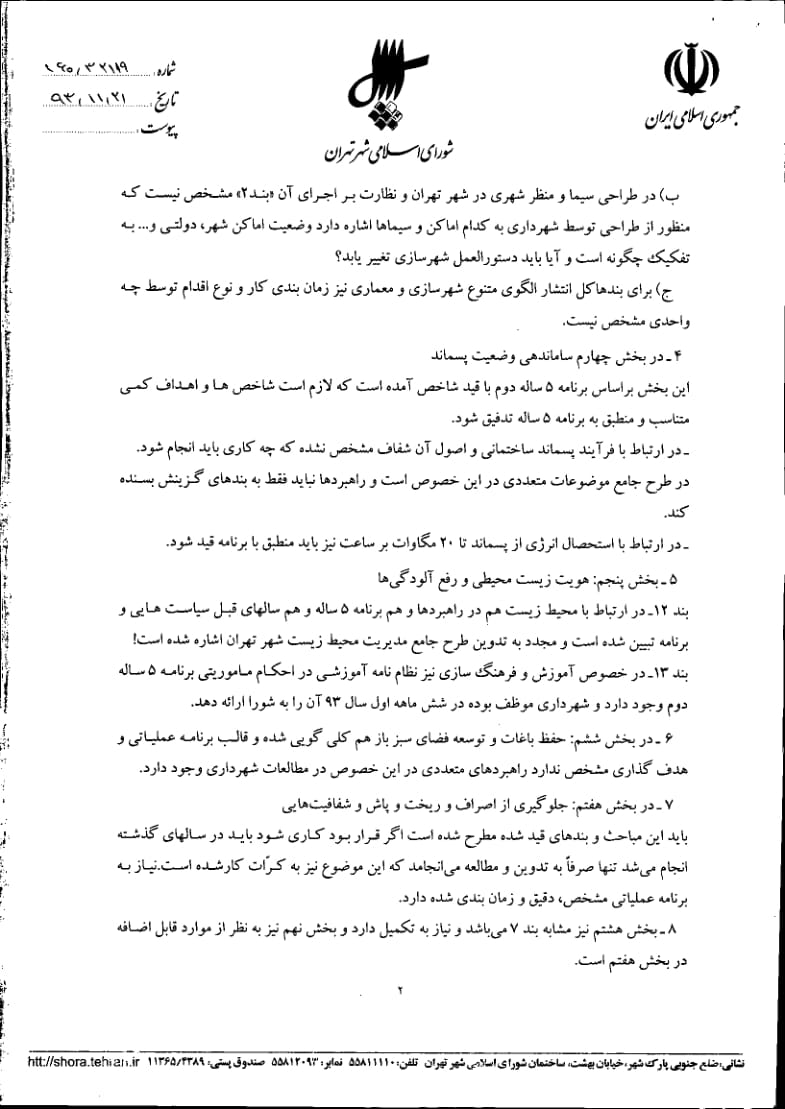 جمهوری اسلامی ایران
شورای اسلامی شهر تهران
شماره: ۱۶۰/۳۲۱۱۹
تاریخ: ۹۳/۱۱/۲۱
پیوست:
ب) در طراحی سیما و منظر شهری در شهر تهران و نظارت بر اجرای آن «بند۲» مشخص نیست که
منظور از طراحی توسط شهرداری به کدام اماکن و سیماها اشاره دارد وضعیت اماکن شهر، دولتی و... به
تفکیک چگونه است و آیا باید دستورالعمل شهرسازی تغییر یابد؟
ج) برای بندهاکل انتشار الگوی متنوع شهرسازی و معماری نیز زمان بندی کار و نوع اقدام توسط چه
واحدی مشخص نیست.
۴ـ در بخش چهارم ساماندهی وضعیت پسماند
این بخش براساس برنامه ۵ ساله دوم با قید شاخص آمده است که لازم است شاخص ها و اهداف کمی
متناسب و منطبق به برنامه ۵ ساله تدقیق شود.
ـ در ارتباط با فرآیند پسماند ساختمانی و اصول آن شفاف مشخص نشده که چه کاری باید انجام شود.
در طرح جامع موضوعات متعددی در این خصوص است و راهبردها نباید فقط به بندهای گزینش بسنده
کند.
ـ در ارتباط با استحصال انرژی از پسماند تا ۲۰ مگاوات بر ساعت نیز باید منطبق با برنامه قید شود.
۵ ـ بخش پنجم: هویت زیست محیطی و رفع آلودگی‌ها
بند ۱۲ـ در ارتباط با محیط زیست هم در راهبردها و هم برنامه ۵ ساله و هم سالهای قبل سیاست هایی و
برنامه تبیین شده است و مجدد به تدوین طرح جامع مدیریت محیط زیست شهر تهران اشاره شده است!
بند ۱۳ـ در خصوص آموزش و فرهنگ سازی نیز نظام نامه آموزشی در احکام ماموریتی برنامه ۵ ساله
دوم وجود دارد و شهرداری موظف بوده در شش ماهه اول سال ۹۳ آن را به شورا ارائه دهد.
۶ ـ در بخش ششم: حفظ باغات و توسعه فضای سبز باز هم کلی گویی شده و قالب برنامه عملیاتی و
هدف گذاری مشخص ندارد راهبردهای متعددی در این خصوص در مطالعات شهرداری وجود دارد.
۷ ـ در بخش هفتم: جلوگیری از اصراف و ریخت و پاش و شفافیت‌هایی
باید این مباحث و بندهای قید شده مطرح شده است اگر قرار بود کاری شود باید در سالهای گذشته
انجام می‌شد تنها صرفاً به تدوین و مطالعه می‌انجامد که این موضوع نیز به کرّات کارشده است.نیاز به
برنامه عملیاتی مشخص، دقیق و زمان بندی شده دارد.
۸ ـ بخش هشتم نیز مشابه بند ۷ می‌باشد و نیاز به تکمیل دارد و بخش نهم نیز به نظر از موارد قابل اضافه
در بخش هفتم است.
۲
نشانی: ضلع جنوبی پارک شهر، خیابان بهشت، ساختمان شورای اسلامی شهر تهران تلفن: ۵۵۸۱۱۱۱۰ نمابر: ۵۵۸۱۲۰۹۳ صندوق پستی: ۱۱۳۶۵/۴۳۸۹ htt://shora.tehran.ir